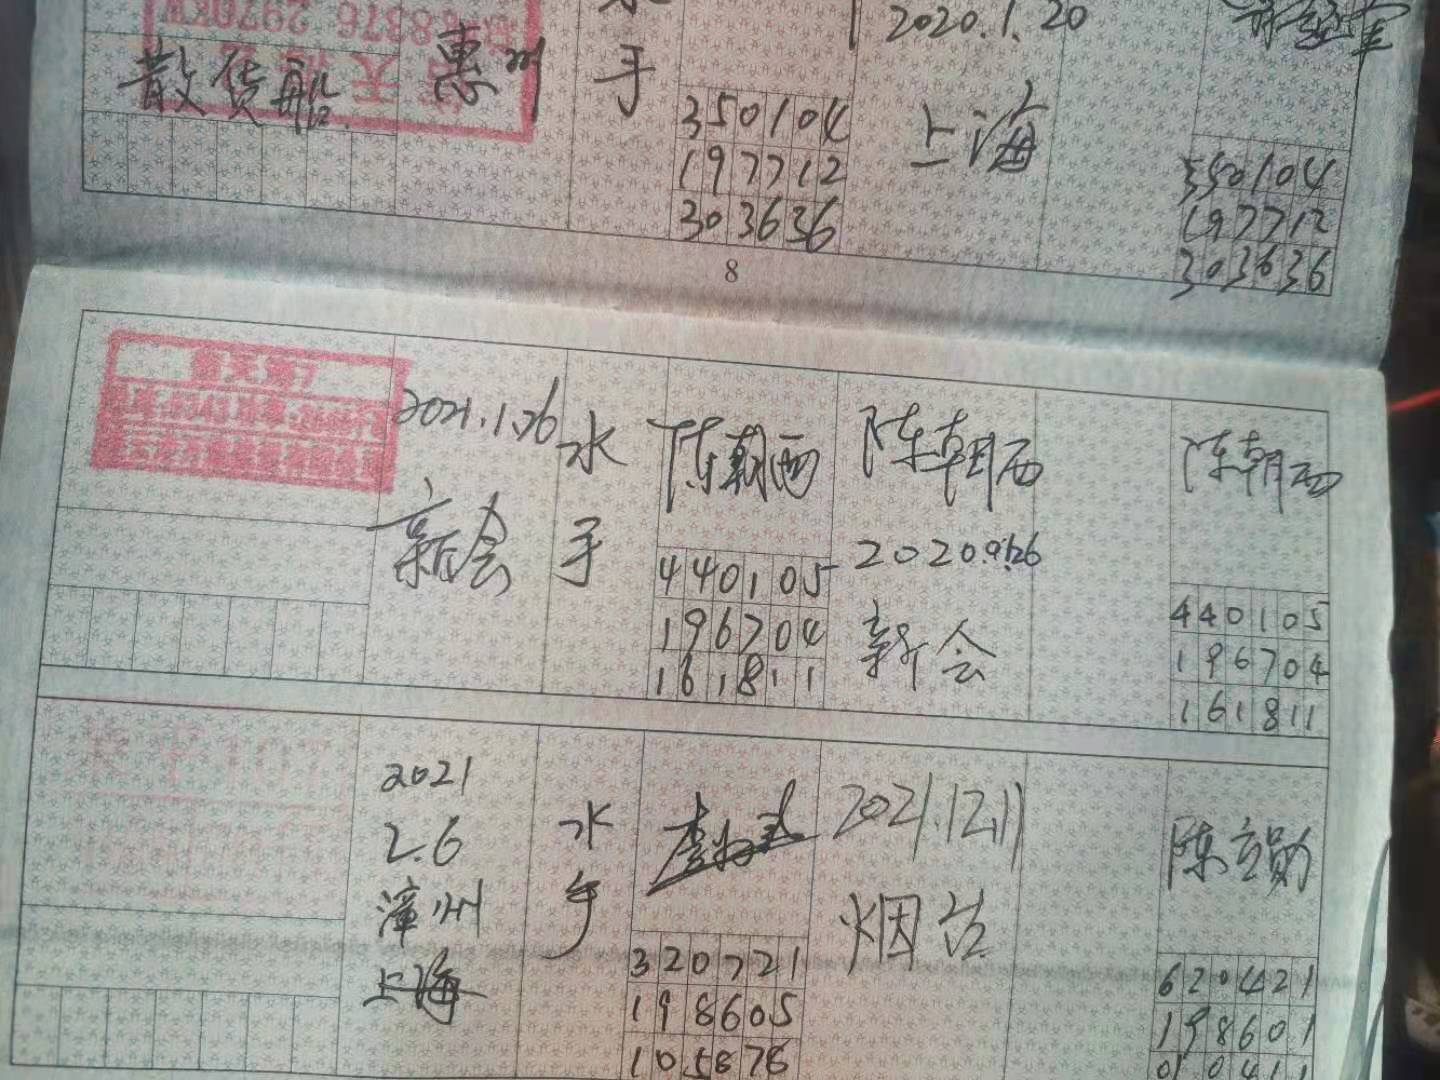 2020.1.20
散货船
惠州
手
上海
350104
197712
303636
350104
197712
303636
8
2021.1.26
新会
水
手
陈朝西
440105
196704
161811
陈朝西
2020.9.26
新会
陈朝西
440105
196704
161811
2021
2.6
漳州
上海
水
手
320721
198605
105876
2021.12.11
烟台
陈立勋
620421
198601
010411